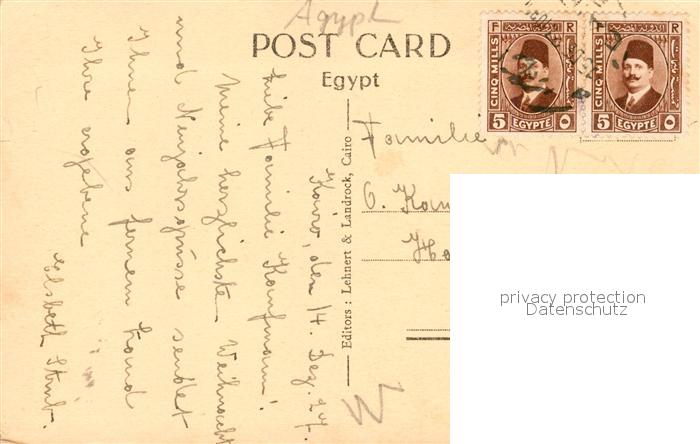 Agypt
POST CARD
Egypt
F R
CINQ MILLS
5 EGYPTE ٥
F R
CINQ MILLS
5 EGYPTE ٥
Editors : Lehnert & Landrock, Cairo
Kairo, den 14. Dez. 27.
Liebe Familie Kaufmann!
Meine herzlichsten Weihnacht
und Neujahrsgrüsse sendet
Ihnen aus fernem Land
Ihre ergebene
Elsbeth
Familie
G.
privacy protection
Datenschutz